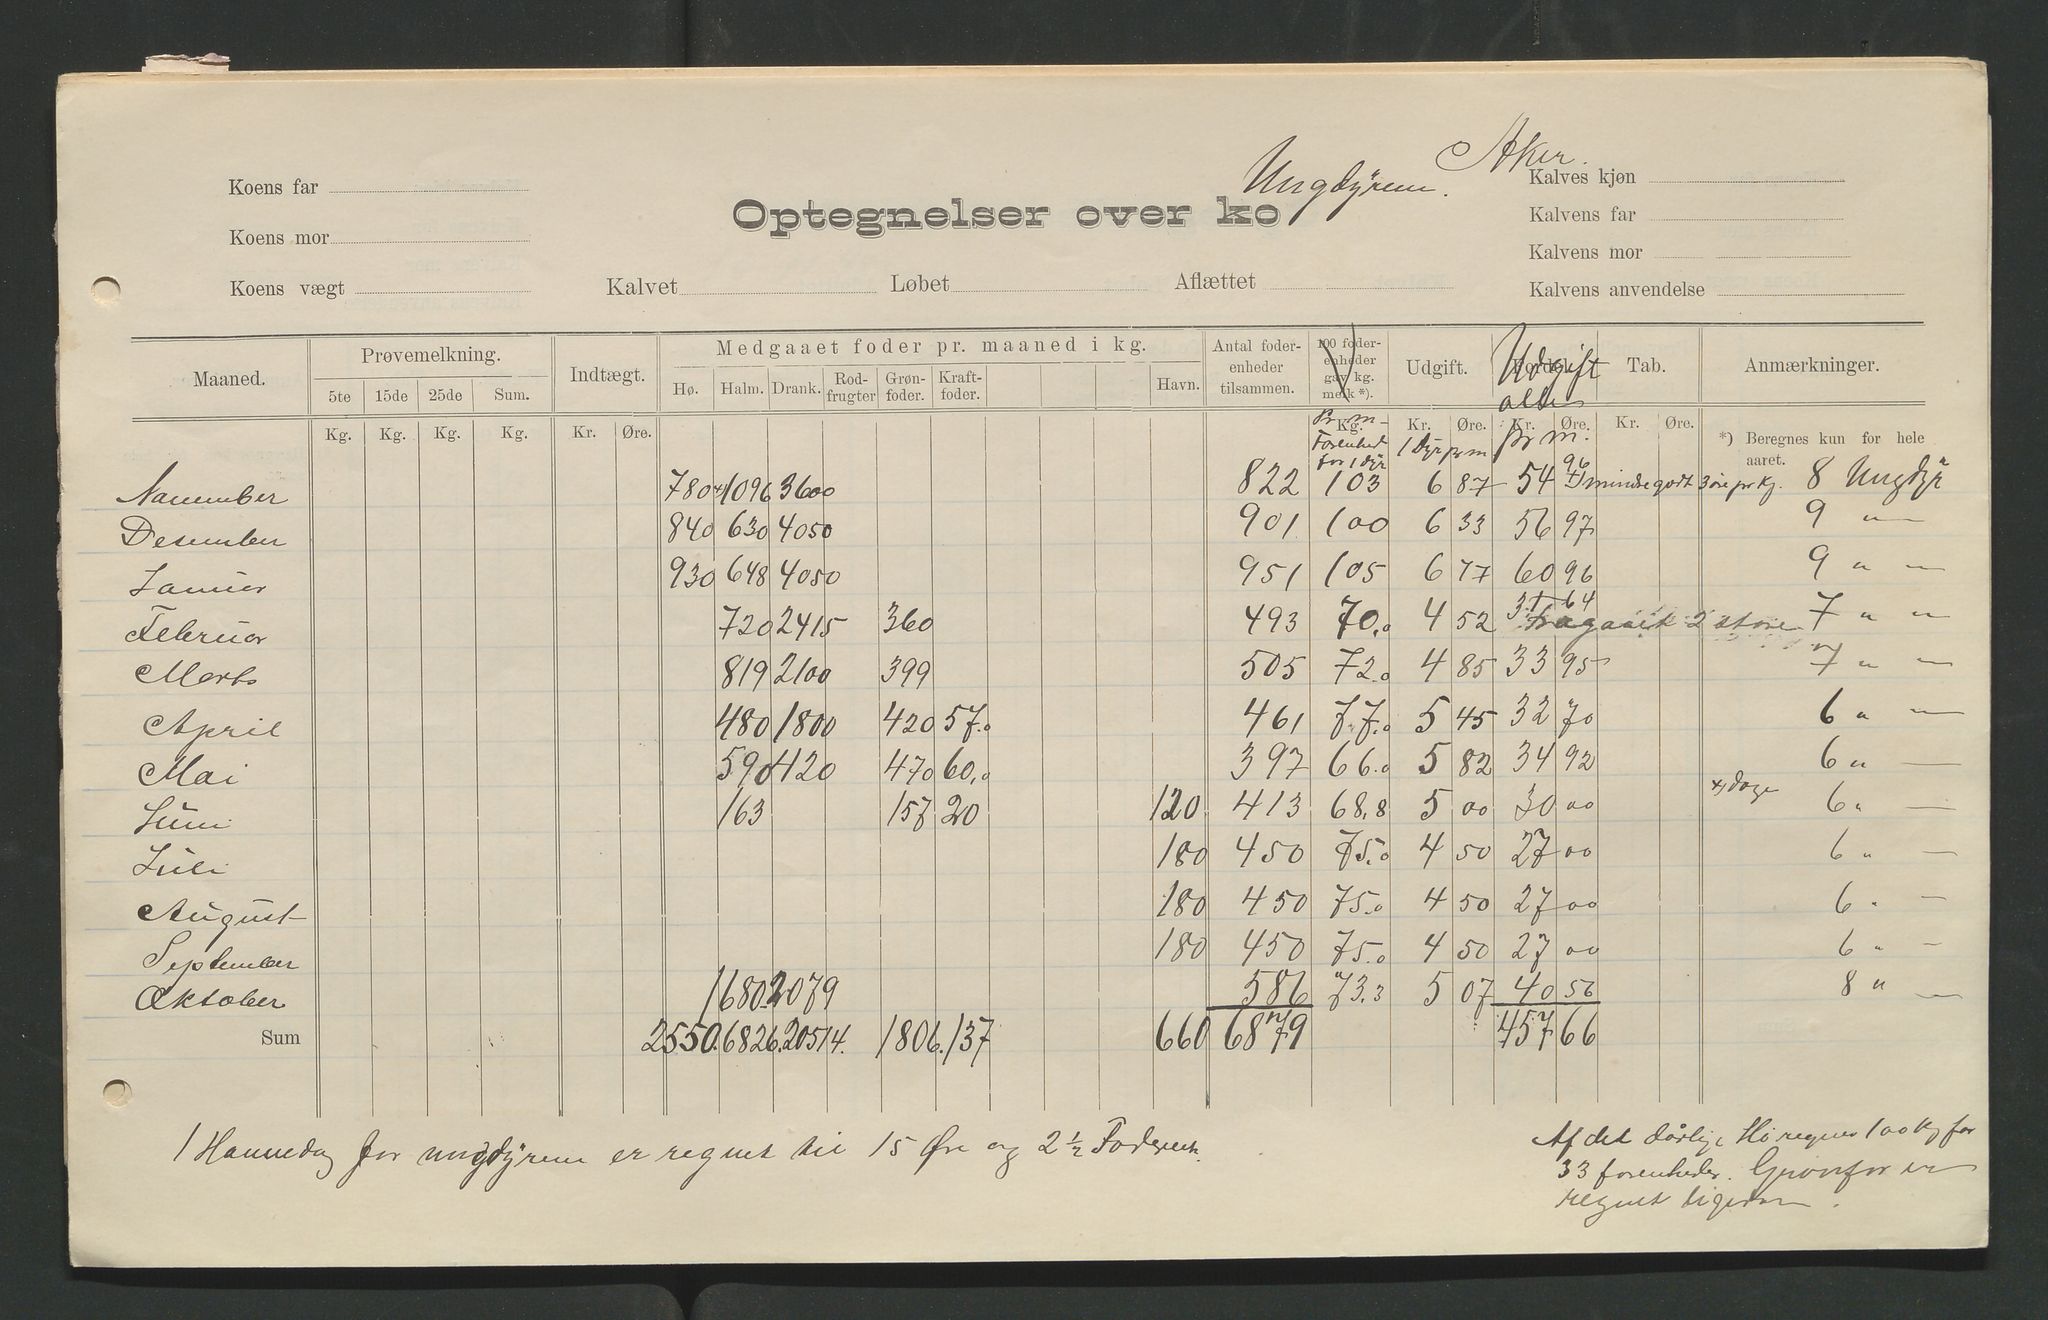 Aker.
Ungdyrene.
Koens far
Koens mor
Koens vægt
Optegnelser over ko
Kalvet Løbet Aflættet
Kalves kjøn
Kalvens far
Kalvens mor
Kalvens anvendelse
Maaned. Prøvemelkning. Indtægt. Medgaaet foder pr. maaned i kg. Antal foder-enheder tilsammen. 100 foder-enheder gav kg. melk *). Udgift. Udgift alle Tab. Anmærkninger.
5te 15de 25de Sum. Hø. Halm. Drank. Rod-frugter Grøn-foder. Kraft-foder. Havn.
Kg. Kg. Kg. Kg. Kr. Øre. Kg. Kr. Øre. Kr. Øre. Kr. Øre. *) Beregnes kun for hele aaret.
pr m Forenhed for 1 dyr 1 Dyr pr m pr m.
November 780 1096 3600 822 103 6 87 54 96 mindre godt 3 øre pr Kg. 8 Ungdyr
Desember 840 630 4050 901 100 6 33 56 97 9 " —
Januar 930 648 4050 951 105 6 77 60 96 9 " —
Februar 720 2415 360 493 70,0 4 52 31 64 fragaaet 2 store 7 " —
Marts 819 2100 399 505 72.0 4 85 33 95 7 " —
April 480 1800 420 57.0 461 77.0 5 45 32 70 6 " —
Mai 590 420 470 60,0 397 66.0 5 82 34 92 6 " —
Juni 163 157 20 120 413 68,8 5 00 30 00 x) dage 6 " —
Juli 180 450 75.0 4 50 27 00 6 " —
August 180 450 75.0 4 50 27 00 6 " —
September 180 450 75.0 4 50 27 00 6 " —
Oktober 1680 2079 586 73,3 5 07 40 56 8 " —
Sum 2550. 6826. 20514. 1806. 137 660 6879 457 66
1 Havnedag for ungdyrene er regnet til 15 Øre og 2 1/2 Foderenh.
Af det dårlige Hø regnes 100 Kg for
33 forenheder. Grønfor er
regnet ligedan.